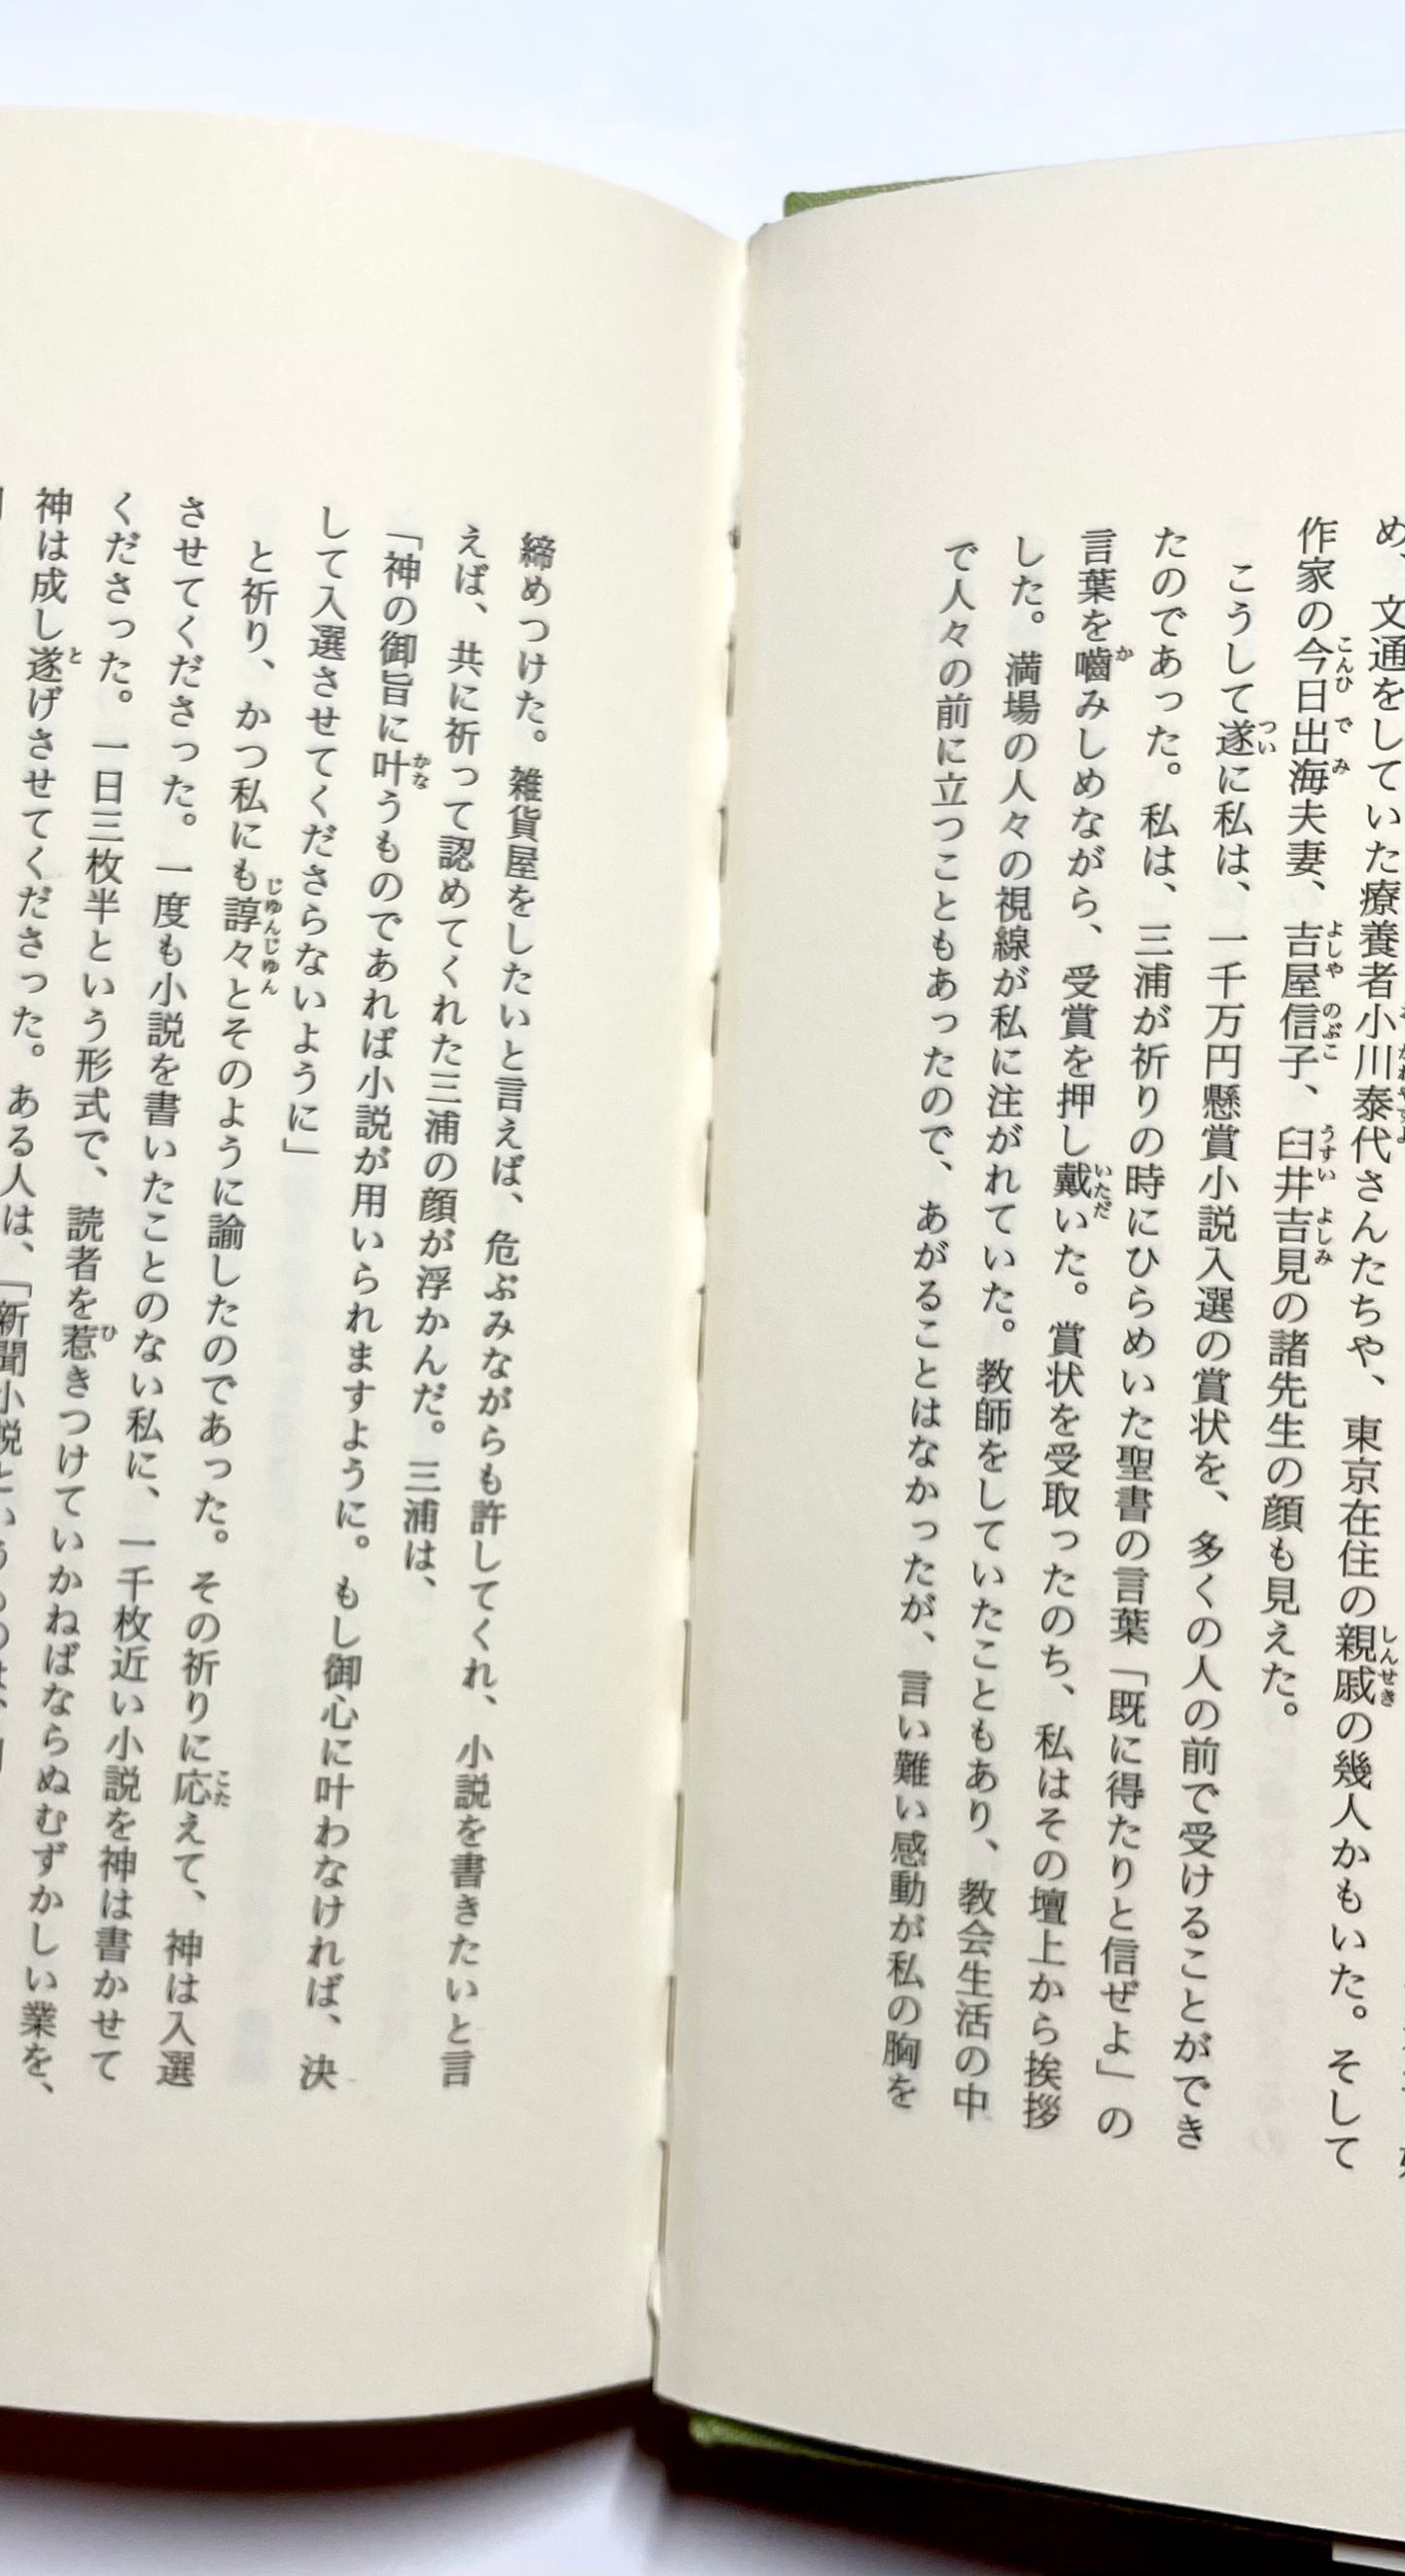 め、文通をしていた療養者小川泰代さんたちや、東京在住の親戚の幾人かもいた。そして
作家の今日出海夫妻、吉屋信子、臼井吉見の諸先生の顔も見えた。
こうして遂に私は、一千万円懸賞小説入選の賞状を、多くの人の前で受けることができ
たのであった。私は、三浦が祈りの時にひらめいた聖書の言葉「既に得たりと信ぜよ」の
言葉を嚙みしめながら、受賞を押し戴いた。賞状を受取ったのち、私はその壇上から挨拶
した。満場の人々の視線が私に注がれていた。教師をしていたこともあり、教会生活の中
で人々の前に立つこともあったので、あがることはなかったが、言い難い感動が私の胸を
締めつけた。雑貨屋をしたいと言えば、危ぶみながらも許してくれ、小説を書きたいと言
えば、共に祈って認めてくれた三浦の顔が浮かんだ。三浦は、
「神の御旨に叶うものであれば小説が用いられますように。もし御心に叶わなければ、決
して入選させてくださらないように」
と祈り、かつ私にも諄々とそのように諭したのであった。その祈りに応えて、神は入選
させてくださった。一度も小説を書いたことのない私に、一千枚近い小説を神は書かせて
くださった。一日三枚半という形式で、読者を惹きつけていかねばならぬむずかしい業を、
神は成し遂げさせてくださった。ある人は、「新聞小説というものは、